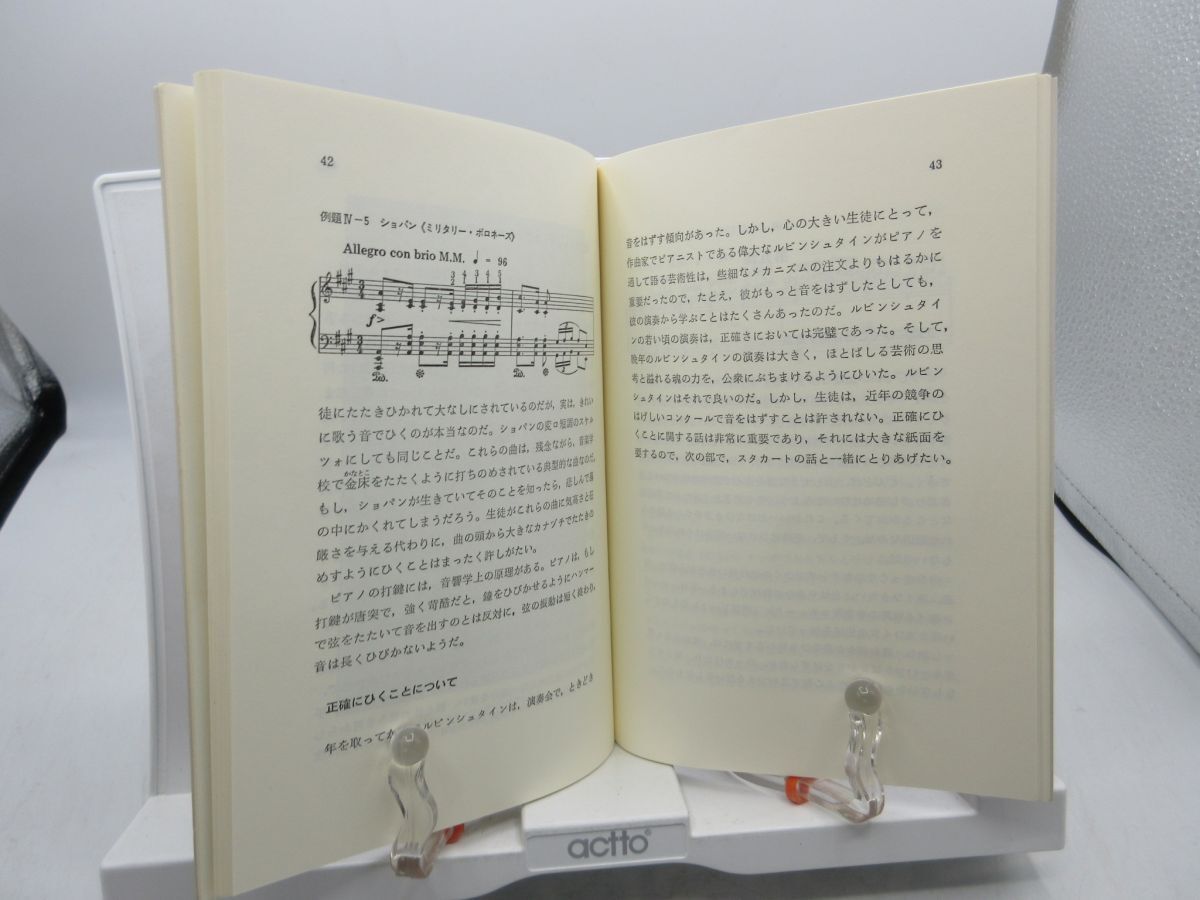 42
例題Ⅳ−5 ショパン《ミリタリー・ポロネーズ》
Allegro con brio M.M. ♩ = 96
徒にたたきひかれて大なしにされているのだが，実は，きれい
に歌う音でひくのが本当なのだ。ショパンの変ロ短調のスケル
ツォにしても同じことだ。これらの曲は，残念ながら，音楽学
かなとこ
校で金床をたたくように打ちのめされている典型的な曲なのだ。
もし，ショパンが生きていてそのことを知ったら，悲しんで墓
の中にかくれてしまうだろう。生徒がこれらの曲に気高さと荘
厳さを与える代わりに，曲の頭から大きなカナヅチでたたきの
めすようにひくことはまったく許しがたい。
ピアノの打鍵には，音響学上の原理がある。ピアノは，もし
打鍵が唐突で，強く苛酷だと，鐘をひびかせるようにハンマー
で弦をたたいて音を出すのとは反対に，弦の振動は短く終わり，
音は長くひびかないようだ。
正確にひくことについて
年を取ってか ルビンシュタインは，演奏会で，ときどき
43
音をはずす傾向があった。しかし，心の大きい生徒にとって，
作曲家でピアニストである偉大なルビンシュタインがピアノを
通して語る芸術性は，些細なメカニズムの注文よりもはるかに
重要だったので，たとえ，彼がもっと音をはずしたとしても，
彼の演奏から学ぶことはたくさんあったのだ。ルビンシュタイ
ンの若い頃の演奏は，正確さにおいては完璧であった。そして，
晩年のルビンシュタインの演奏は大きく，ほとばしる芸術の思
考と溢れる魂の力を，公衆にぶちまけるようにひいた。ルビン
シュタインはそれで良いのだ。しかし，生徒は，近年の競争の
はげしいコンクールで音をはずすことは許されない。正確にひ
くことに関する話は非常に重要であり，それには大きな紙面を
要するので，次の部で，スタカートの話と一緒にとりあげたい。
actto